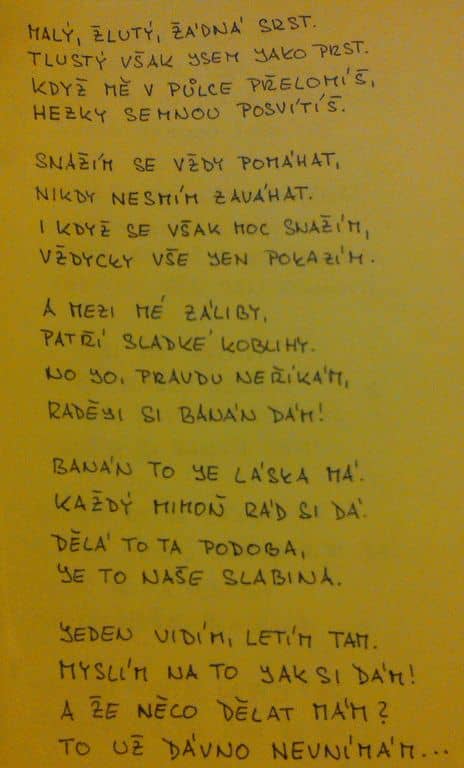 MALÝ, ŽLUTÝ, ŽÁDNÁ SRST.
TLUSTÝ VŠAK JSEM JAKO PRST.
KDYŽ MĚ V PŮLCE PŘELOMÍŠ,
HEZKY SEMNOU POSVÍTÍŠ.
SNAŽÍM SE VŽDY POMÁHAT,
NIKDY NESMÍM ZAVÁHAT.
I KDYŽ SE VŠAK MOC SNAŽÍM,
VŽDYCKY VŠE JEN POKAZÍM.
A MEZI MÉ ZÁLIBY,
PATŘÍ SLADKÉ KOBLIHY.
NO JO, PRAVDU NEŘÍKÁM,
RADĚJI SI BANÁN DÁM!
BANÁN TO JE LÁSKA MÁ.
KAŽDÝ MIMOŇ RÁD SI DÁ.
DĚLÁ TO TA PODOBA,
JE TO NAŠE SLABINA.
JEDEN VIDÍM, LETÍM TAM.
MYSLÍM NA TO JAK SI DÁM!
A ŽE NĚCO DĚLAT MÁM?
TO UŽ DÁVNO NEVNÍMÁM...